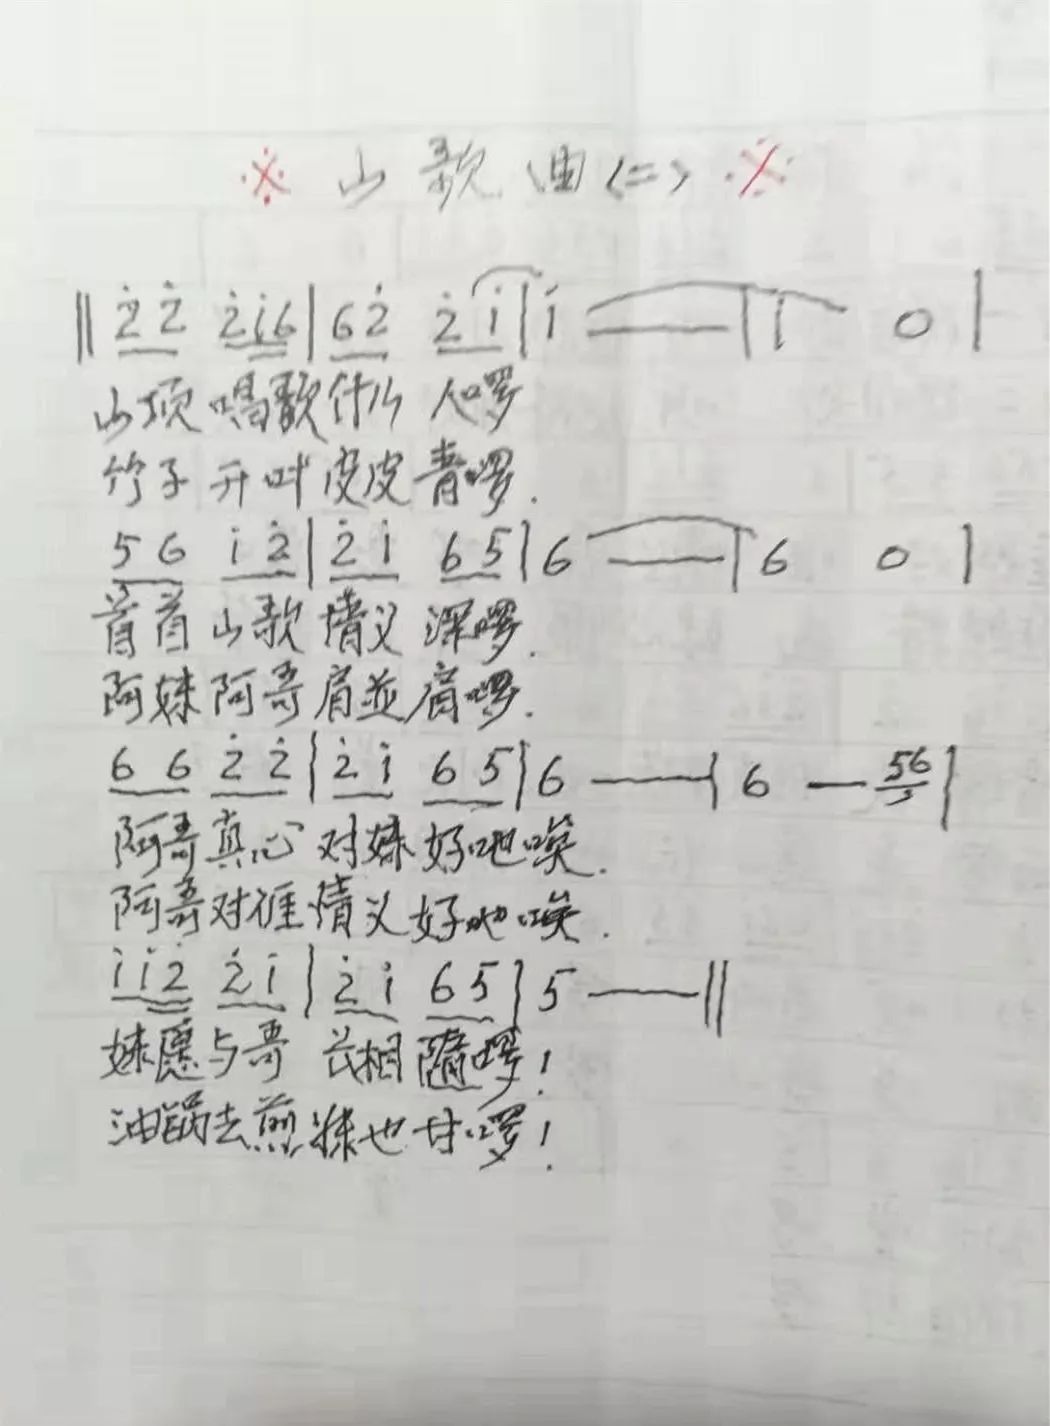 ※ 山歌曲(二) ※
‖ 2̇ 2̇ 2̇ i̇ 6 | 6 2̇ 2̇ i̇ | i̇ — | i 0 |
山顶唱歌什么人啰
竹子开叶皮皮青啰.
5 6 i̇ 2̇ | 2̇ i̇ 6 5 | 6 — | 6 0 |
首首山歌情义深啰.
阿妹阿哥肩並肩啰.
6 6 2̇ 2̇ | 2̇ i̇ 6 5 | 6 — | 6 — 56 |
阿哥真心对妹好吔唉.
阿哥对涯情义好吔唉.
i̇ i̇ 2̇ 2̇ i̇ | 2̇ i̇ 6 5 | 5 — ‖
妹愿与哥长相随啰!
油锅去煎妹也甘啰!